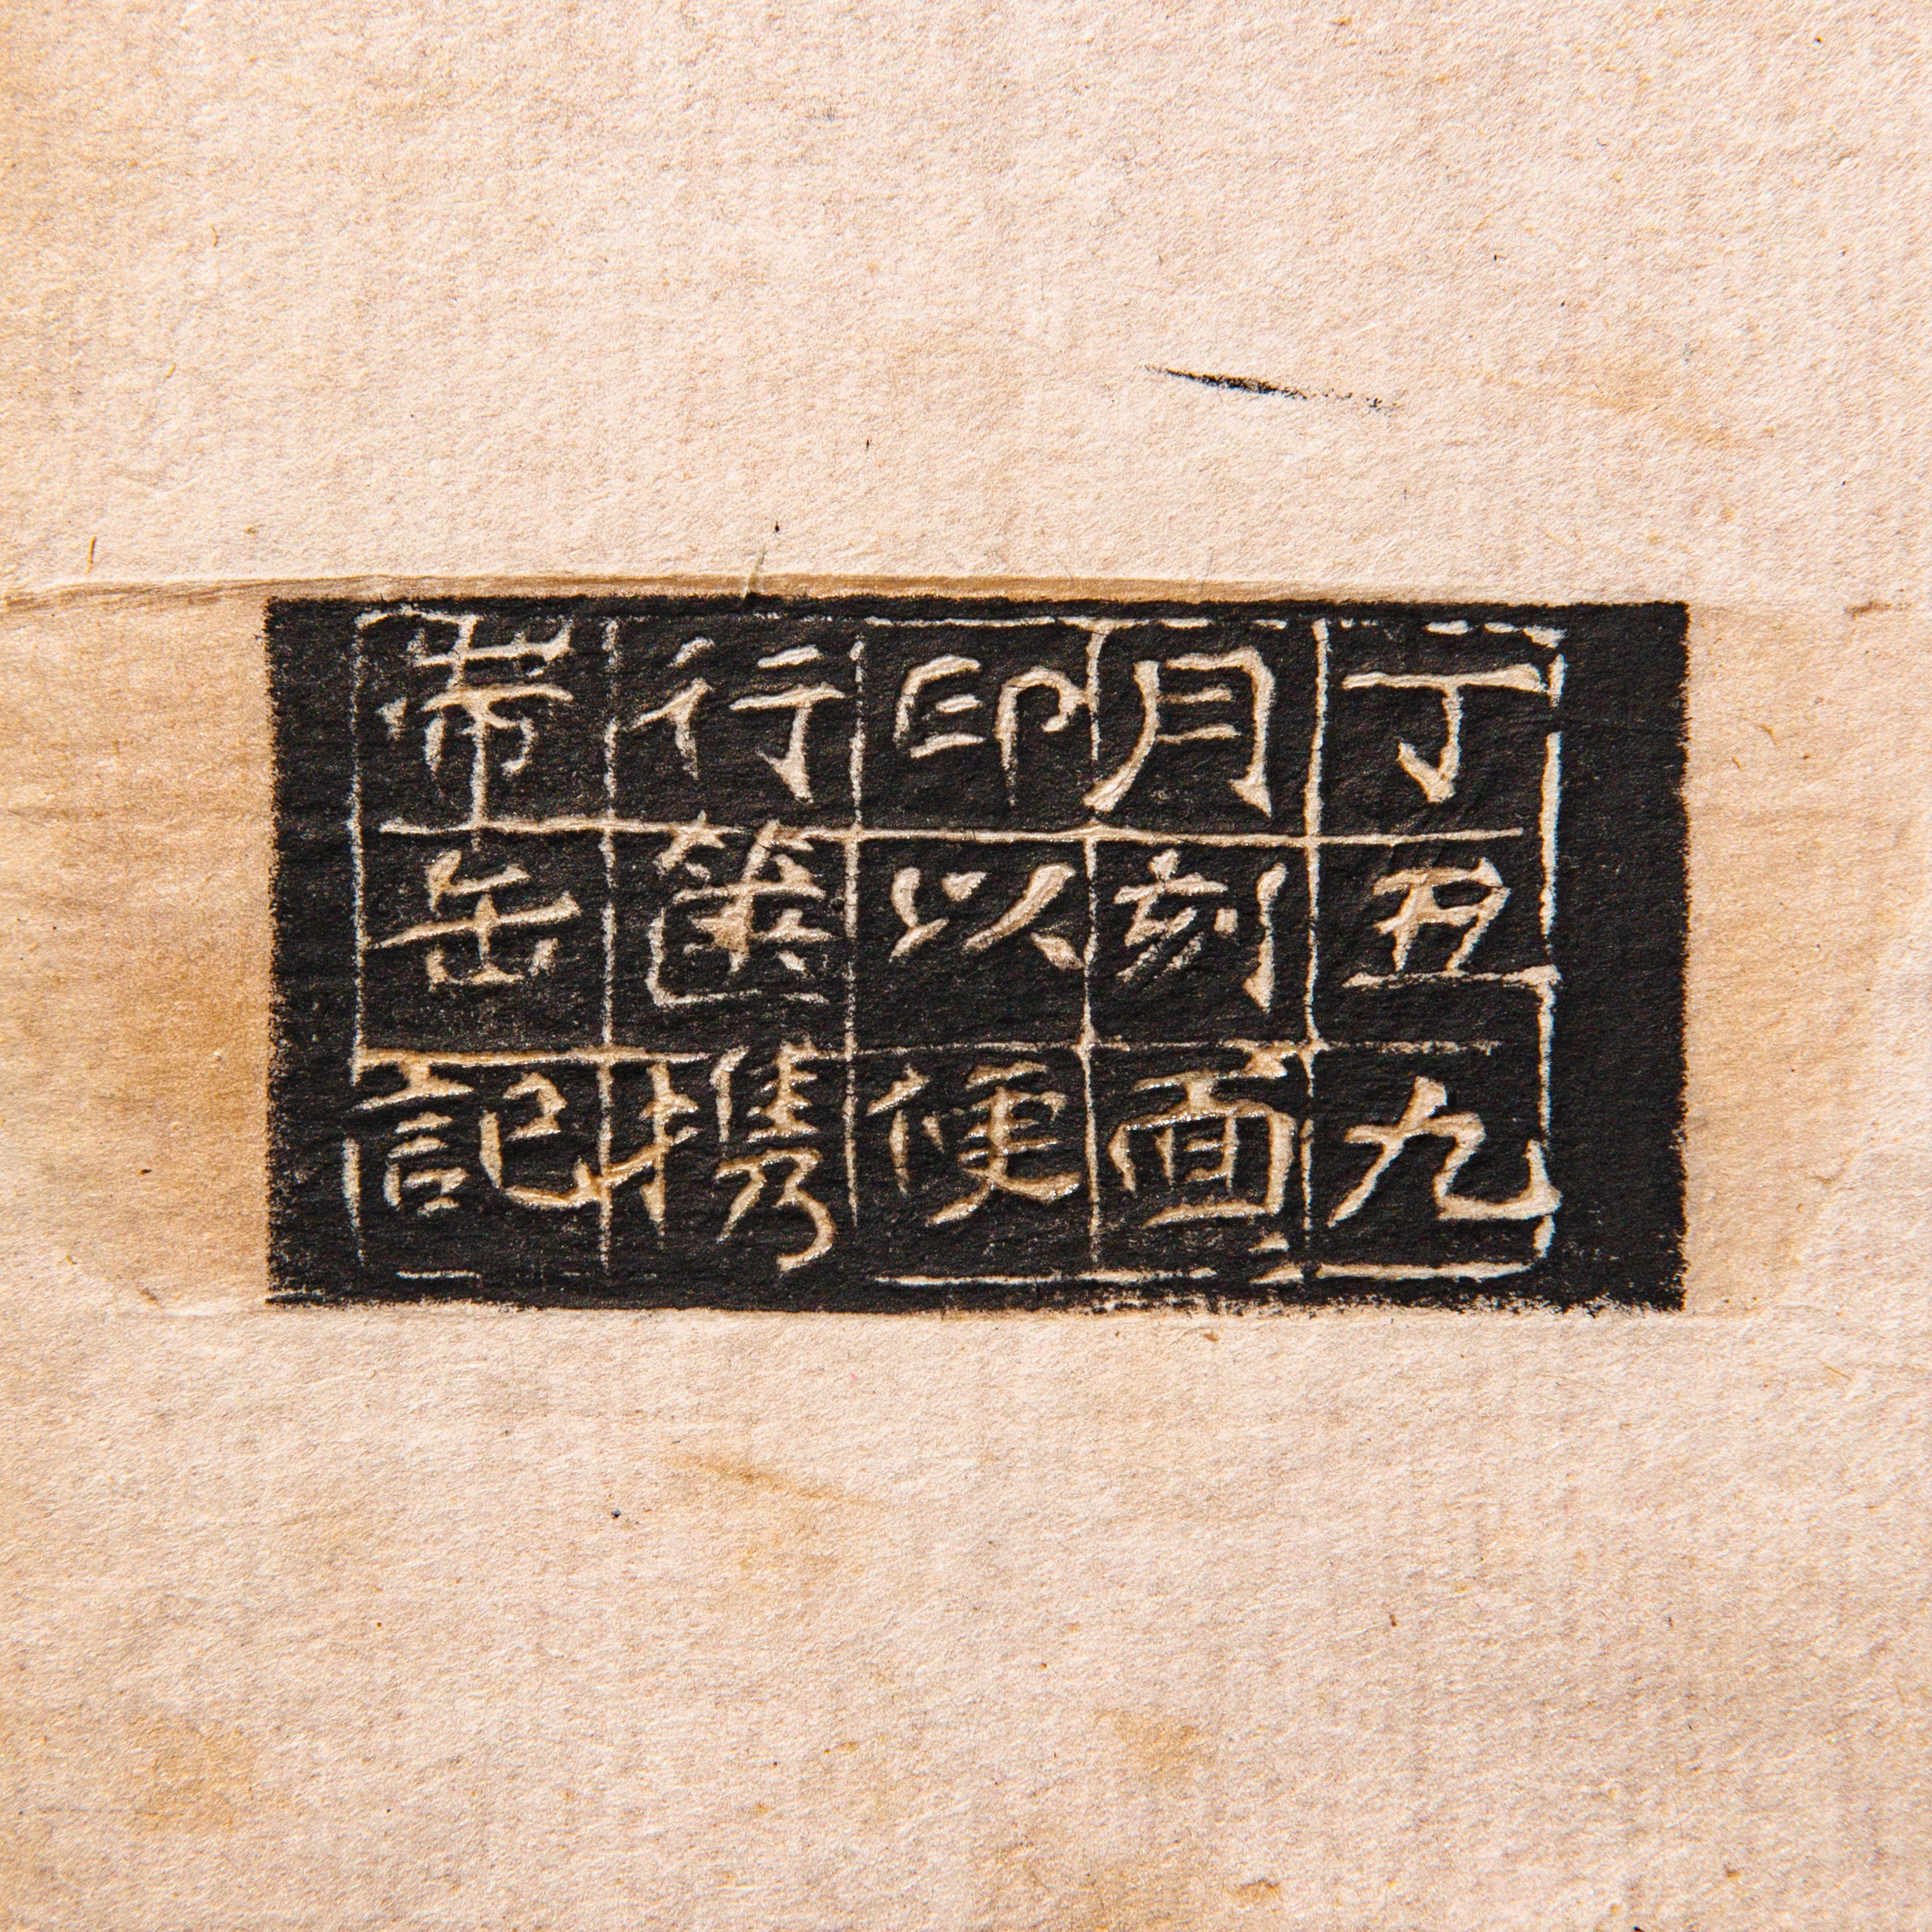 丁丑九
月刻面
印以便
行篋携
帶缶記